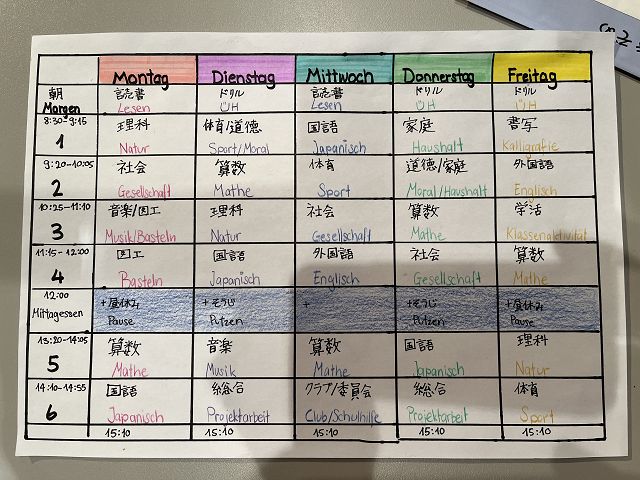 Montag Dienstag Mittwoch Donnerstag Freitag
朝 読書 ドリル 読書 ドリル ドリル
Morgen Lesen ÜH Lesen ÜH ÜH
8:30-9:15 理科 体育/道徳 国語 家庭 書写
1 Natur Sport/Moral Japanisch Haushalt Kalligrafie
9:20-10:05 社会 算数 体育 道徳/家庭 外国語
2 Gesellschaft Mathe Sport Moral/Haushalt Englisch
10:25-11:10 音楽/図工 理科 社会 算数 学活
3 Musik/Basteln Natur Gesellschaft Mathe Klassenaktivität
11:15-12:00 図工 国語 外国語 社会 算数
4 Basteln Japanisch Englisch Gesellschaft Mathe
12:00 +昼休み +そうじ + +そうじ +昼休み
Mittagessen Pause Putzen Putzen Pause
13:20-14:05 算数 音楽 算数 国語 理科
5 Mathe Musik Mathe Japanisch Natur
14:10-14:55 国語 総合 クラブ/委員会 総合 体育
6 Japanisch Projektarbeit Club/Schulhilfe Projektarbeit Sport
15:10 15:10 15:10 15:10 15:10